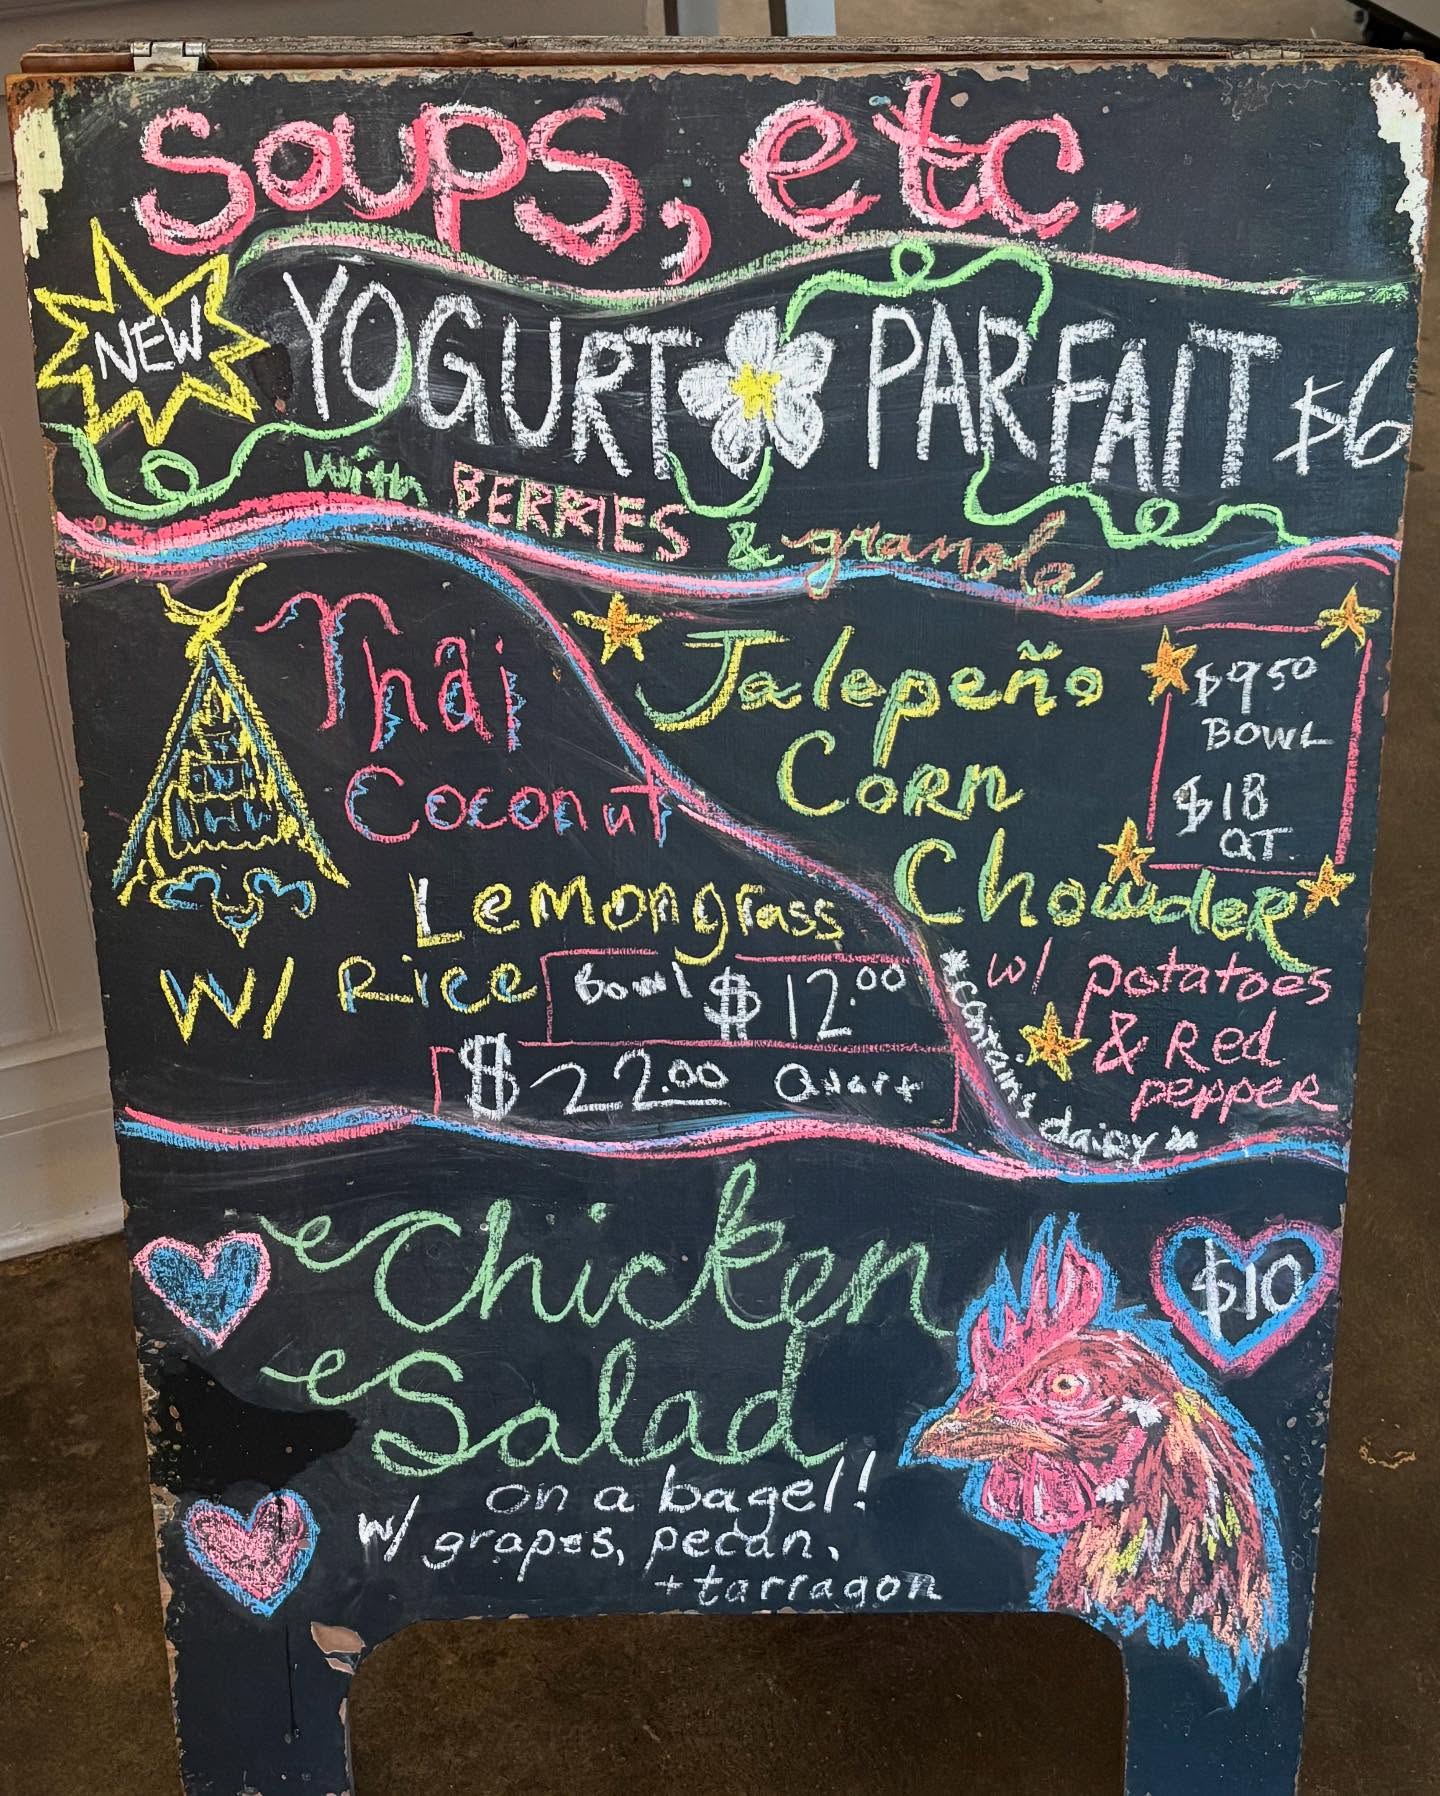 Soups, etc.
NEW
YOGURT PARFAIT $6
with BERRIES & granola
Thai
Coconut
Lemongrass
W/ Rice
Bowl $12.00
$22.00 Quart
Jalepeño
Corn
Chowder
$9.50
BOWL
$18
QT.
w/ potatoes
& Red
pepper
*contains dairy*
Chicken
Salad
$10
on a bagel!
w/ grapes, pecan,
+ tarragon